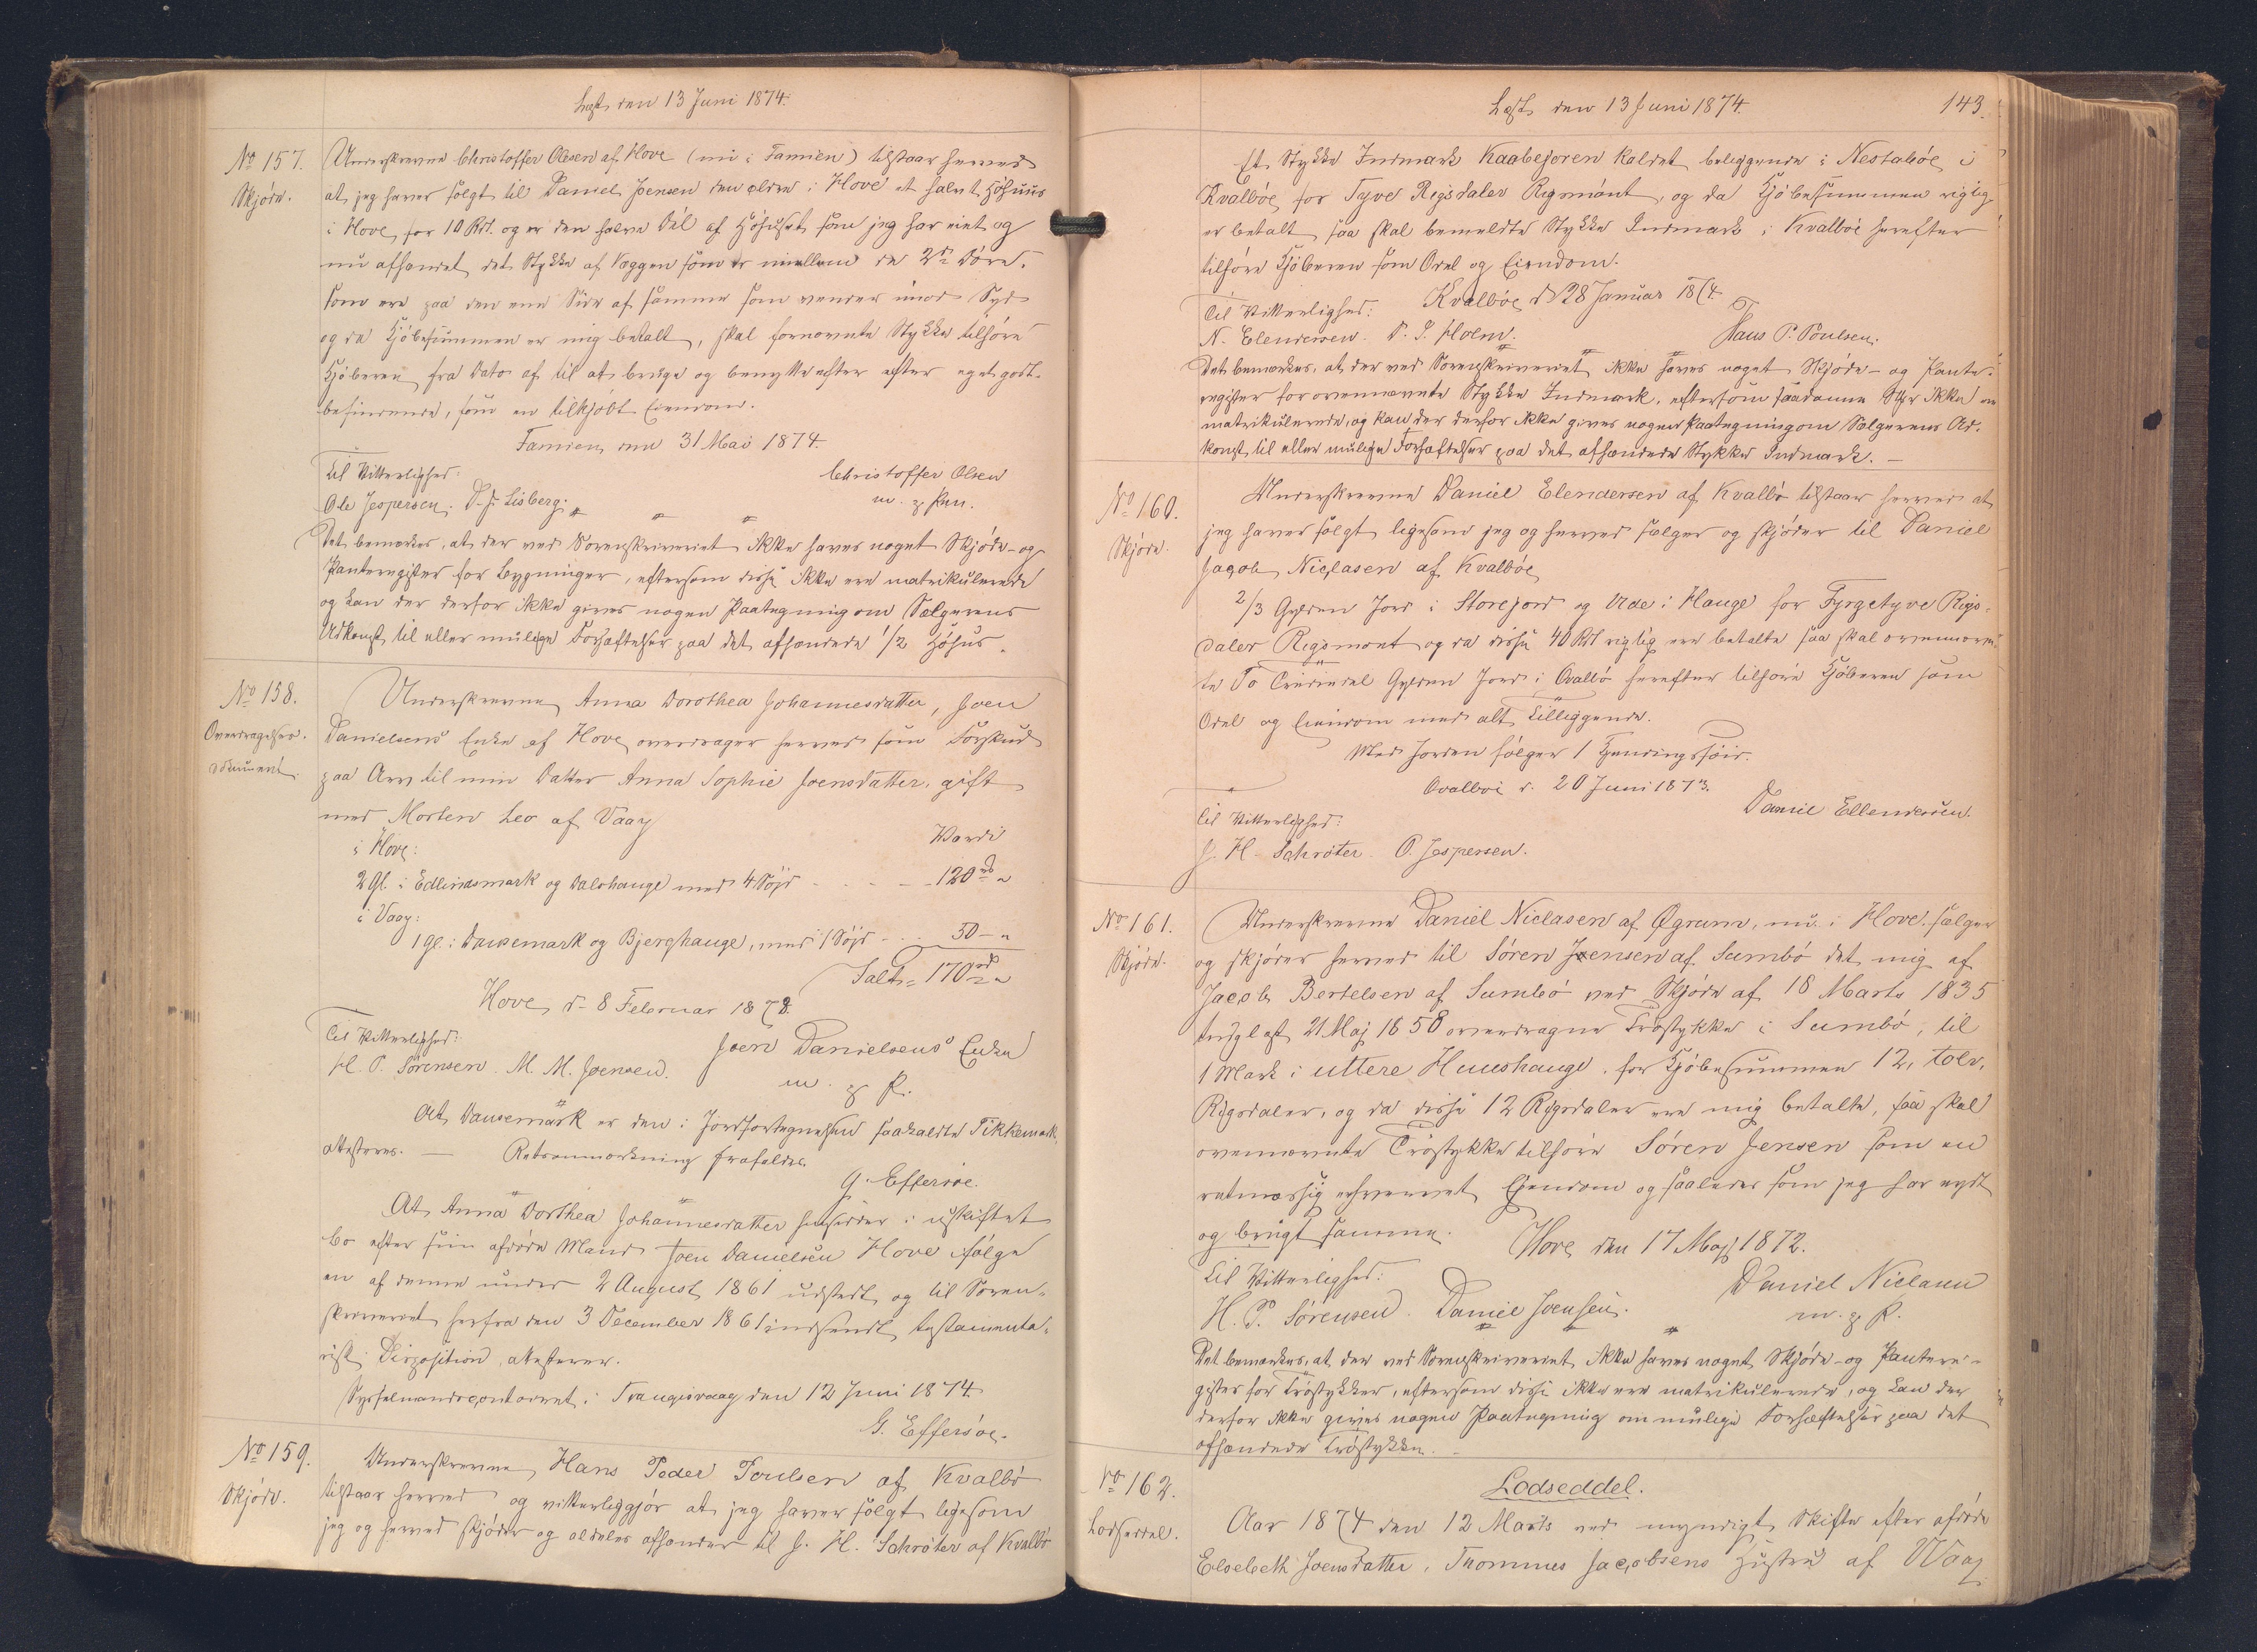 Læst den 13 Juni 1874.
No 157.
Skjøde.
Underskrevne Christoffer Olesen af Hove (nu i Famien) tilstaar herved
at jeg haver solgt til Daniel Joensen den ældre i Hove et halvt Høhuus
i Hove for 10 Rdl. og er den halve Del af Høhuset som jeg har eiet og
nu afhændet det Stykke af Væggen som er imellem de 2de Døre,
som ere paa den ene Side af samme som vender imod Syd
og da Kjøbesummen er mig betalt, skal fornævnte Stykke tilhøre
Kjøberen fra Dato af til at bruge og benytte efter efter eget godt-
befindende, som en tilkjøbt Eiendom.
Famien, den 31 Mai 1874.
Til Vitterlighed:
Christoffer Olsen
Ole Jespersen. D. J. Lisberg.
m. p. Pen.
Det bemærkes, at der ved Sorenskriveriet ikke haves noget Skjøde- og
Panteregister for Bygninger, eftersom disse ikke ere matrikulerede
og kan der derfor ikke gives nogen Paategning om Sælgerens
Adkomst til eller mulige Forhæftelser paa det afhændede 1/2 Høhus.
No 158.
Overdragelses-
dokument.
Underskrevne Anna Dorothea Johannesdatter, Joen
Danielsens Enke af Hove overdrager herved som Forskud
paa Arv til min Datter Anna Sophie Joensdatter, gift
med Morten Leo af Vaag
i Hove:
Værdi
2 Gl. i Edlindsmark og Dalshauge med 4 Søjd - - - - 120 rd "
i Vaag:
1 gl. i Dansemark og Bjerghauge, med 1 Søjd - - - 50 - "
Salt = 170 rd "
Hove, d. 8 Februar 1878.
Til Vitterlighed:
Joen Danielsens Enke
H. P. Sørensen. M. M. Joensen.
m. p. P.
At Dansemark er den i Jordfortegnelsen saakaldte Tikkemark,
attesteres. — Retsanmærkning frafaldes.
G. Effersøe.
At Anna Dorthea Johannesdatter hensidder i uskiftet
bo efter sin afdøde Mand Joen Danielsen Hove ifølge
en af denne under 2 August 1861 udstedt, og til Soren-
skriveriet herfra den 3 December 1861 indsendt testamenta-
risk Disposition, attesteres.
Sysselmandscontoiret i Trangisvaag den 12 Juni 1874
G. Effersøe.
No 159.
Skjøde.
Underskrevne Hans Peder Poulsen af Kvalbø
tilstaar herved og vitterliggjør at jeg haver solgt ligesom
jeg og herved skjøder og aldeles afhænder til J. H. Schrøter af Kvalbø
Læst den 13 Juni 1874.
143.
Et Stykke Indmark Kaabejoren kaldet beliggende i Nestabøe i
Kvalbøe for Tyve Rigsdaler Rigsmønt, og da Kjøbesummen rigtig
er betalt saa skal bemeldte Stykke Indmark i Kvalbøe herefter
tilhøre Kjøberen som Odel og Eiendom.
Kvalbøe, d. 28 Januar 1874
Til Vitterlighed:
Hans P. Poulsen.
N. Elendersen. P. S. Holm.
Det bemærkes, at der ved Sorenskriveriet ikke haves noget Skjøde- og Pante-
register for ovennævnte Stykke Indmark, eftersom saadanne Stkr ikke ere
matrikulerede, og kan der derfor ikke gives nogen Paategning om Sælgerens Ad-
komst til eller mulige Forhæftelser paa det afhændede Stykke Indmark. —
No 160.
Skjøde.
Underskrevne Daniel Elendersen af Kvalbø tilstaar herved at
jeg haver solgt ligesom jeg og herved sælger og skjøder til Daniel
Jacob Niclasen af Kvalbøe
2/3 Gylden Jord i Storejord og Ude i Hauge for Fyrgetyve Rigs-
daler Rigsmønt og da disse 40 Rdl rigtig ere betalte saa skal ovennævn-
te To Trediedel Gylden Jord i Qvalbø herefter tilhøre Kjøberen som
Odel og Eiendom med alt Tilliggende.
Med Jorden følger 1 Hundings søid.
Qvalboe d. 20 Juni 1873.
Til Vitterlighed:
Daniel Ellendersen.
J. H. Schrøter. O. Jespersen.
No 161.
Skjøde.
Underskrevne Daniel Niclasen af Øgrum, nu i Hove, sælger
og skjøder herved til Søren Joensen af Sumbø det mig af
Jacob Bertelsen af Sumbø ved Skjøde af 18 Marts 1835
tinglæst 21 Maj 1858 overdragne Trøstykke i Sumbø, til
1 Mark i uttere Huushauge, for Kjøbesummen 12, tolv,
Rigsdaler, og da disse 12 Rigsdaler ere mig betalte, saa skal
ovennævnte Trøstykke tilhøre Søren Jensen som en
retmæssig erhvervet Ejendom og saaledes som jeg har nydt
og brugt samme.
Hove, den 17 Maj 1872.
Til Vitterlighed:
Daniel Niclasen
H. P. Sørensen. Daniel Joensen.
m. p. P.
Det bemærkes, at der ved Sorenskriveriet ikke haves noget Skjøde- og Pantere-
gister for Trøstykker, eftersom disse ikke ere matrikulerede, og kan der
derfor ikke gives nogen Paategning om mulige Forhæftelser paa det
afhændede Trøstykke. —
No 162.
Lodseddel.
Lodseddel.
Aar 1874 den 12 Marts ved myndigt Skifte efter afdøde
Elsebeth Joensdatter, Thommes Jacobsens Hustru af Waag